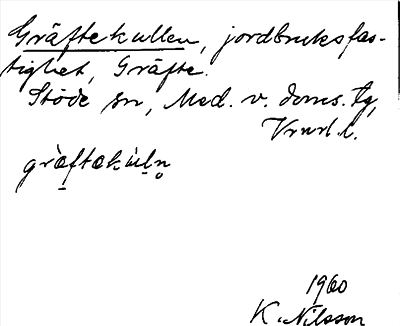 Gräftekullen, jordbruksfas-
tighet, Gräfte.
Stöde sn, Med. v. doms. tg,
Vrnrl. l.
græ̀ftækùln̥
1960
K. Nilsson